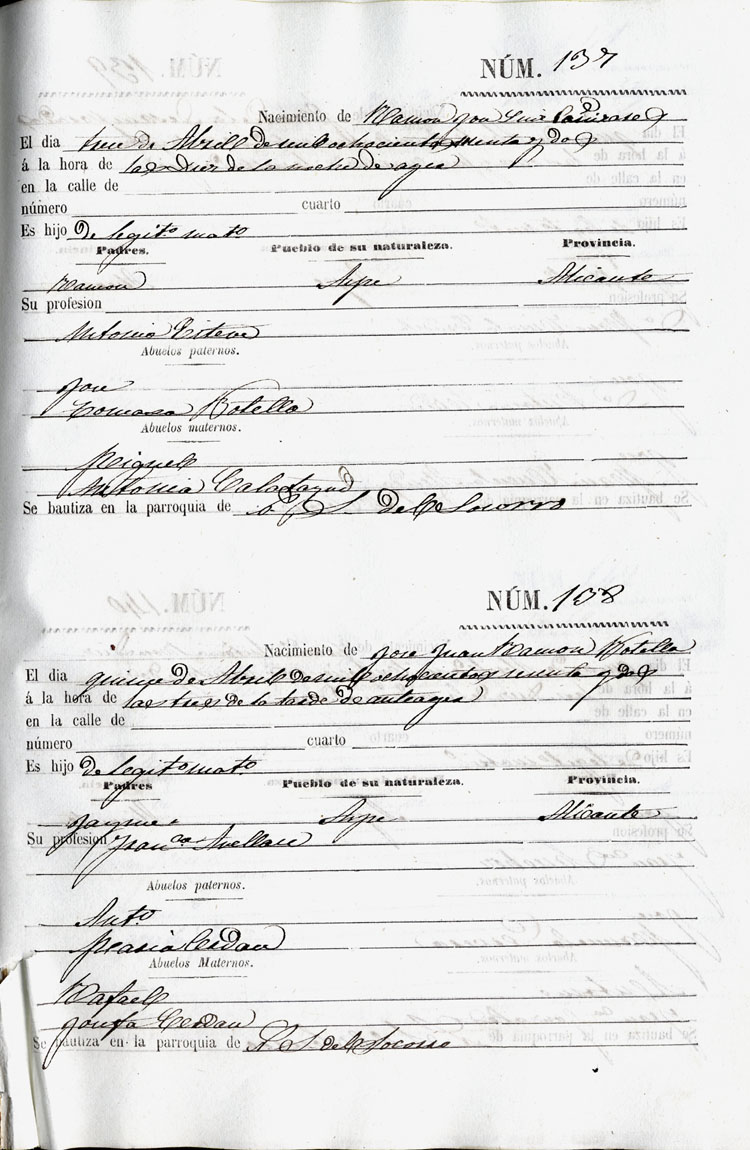 NÚM. 137
Nacimiento de Ramon José Luis
El dia trece de Abril de mil ochocientos sesenta y dos
á la hora de las diez de la noche de ayer
en la calle de
número cuarto
Es hijo de legito mato
Padres. Pueblo de su naturaleza. Provincia.
Ramon Aspe Alicante
Su profesion
Antonia Esteve
Abuelos paternos.
José
Tomasa Botella
Abuelos maternos.
Miguel
Antonia Calatayud
Se bautiza en la parroquia de N. S. del Socorro
NÚM. 138
Nacimiento de José Juan Ramon Botella
El dia quince de Abril de mil ochocientos sesenta y dos
á la hora de las tres de la tarde de anteayer
en la calle de
número cuarto
Es hijo de legitomato
Padres Pueblo de su naturaleza. Provincia.
Jayme Aspe Alicante
Su profesion Franca
Abuelos paternos.
Anto
Maria Cerdan
Abuelos Maternos.
Rafael
Josefa Cerdan
Se bautiza en la parroquia de N. S. del Socorro